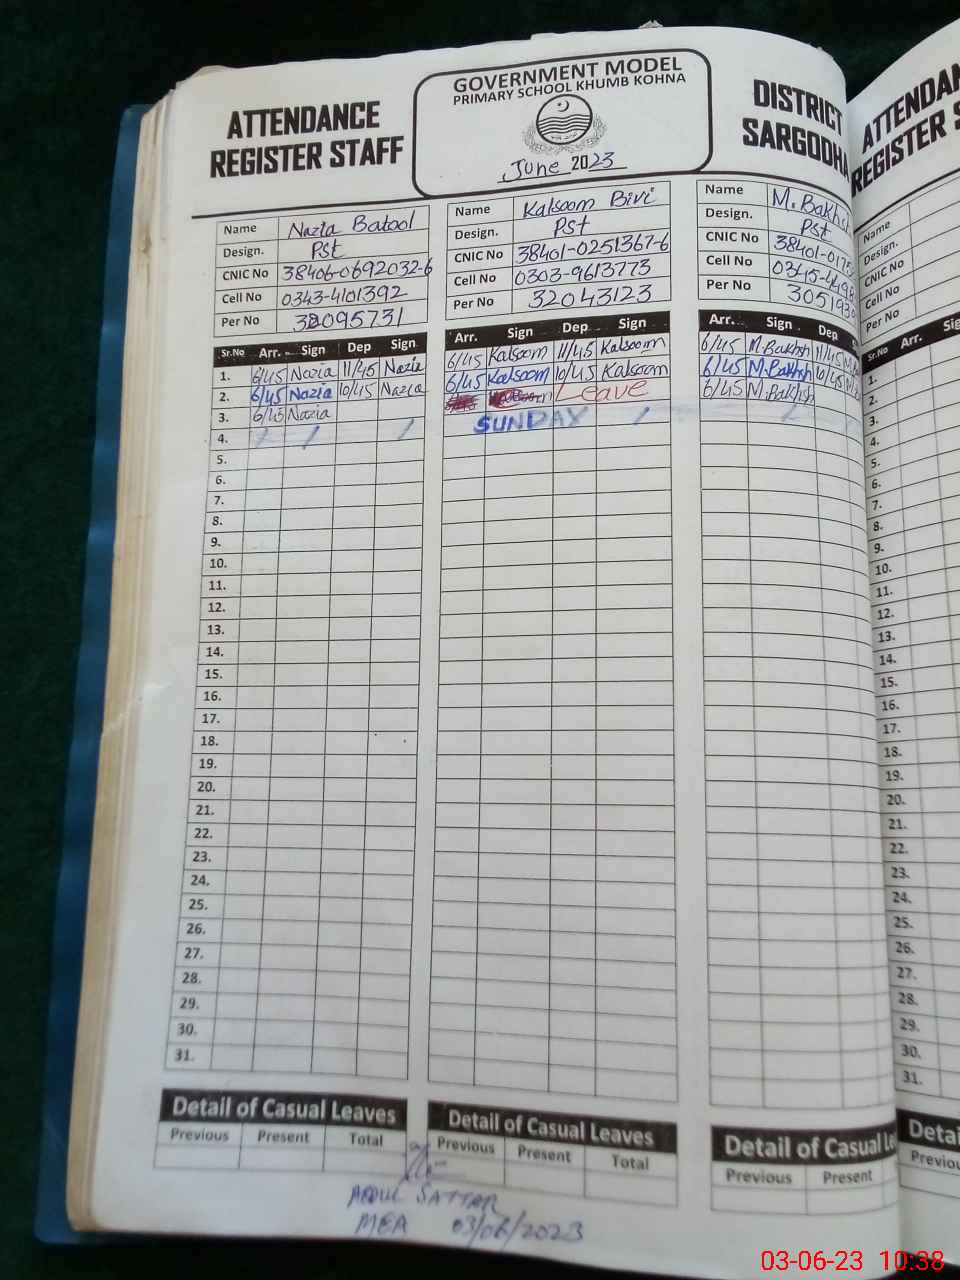 ATTENDANCE
REGISTER STAFF
GOVERNMENT MODEL
PRIMARY SCHOOL KHUMB KOHNA
June 2023
DISTRICT
SARGODHA
Name Nazia Batool
Design. Pst
CNIC No 38406-0692032-6
Cell No 0343-4101392
Per No 32095731
Name Kalsoom Bivi
Design. Pst
CNIC No 38401-0251367-6
Cell No 0303-9613773
Per No 32043123
Name M. Bakhsh
Design. Pst
CNIC No 38401-0175
Cell No
Per No
Sr.No Arr. Sign Dep Sign
1. 6/45 Nazia 11/45 Nazia
2. 6/45 Nazia 10/45 Nazia
3. 6/45 Nazia
4.
5.
6.
7.
8.
9.
10.
11.
12.
13.
14.
15.
16.
17.
18.
19.
20.
21.
22.
23.
24.
25.
26.
27.
28.
29.
30.
31.
Arr. Sign Dep Sign
6/45 Kalsoom 11/45 Kalsoom
6/45 Kalsoom 10/45 Kalsoom
Leave
SUNDAY
Arr. Sign Dep
6/45 M.Bakhsh 11/45
6/45 M.Bakhsh 10/45
6/45 M.Bakhsh
Detail of Casual Leaves
Previous Present Total
Detail of Casual Leaves
Previous Present Total
Detail of Casual
Previous Present
ABDUL SATTAR
MEA 03/06/2023
REGISTER
Name
Design.
CNIC No
Cell No
Per No
Sr.No Arr.
1.
2.
3.
4.
5.
6.
7.
8.
9.
10.
11.
12.
13.
14.
15.
16.
17.
18.
19.
20.
21.
22.
23.
24.
25.
26.
27.
28.
29.
30.
31.
03-06-23 10:38